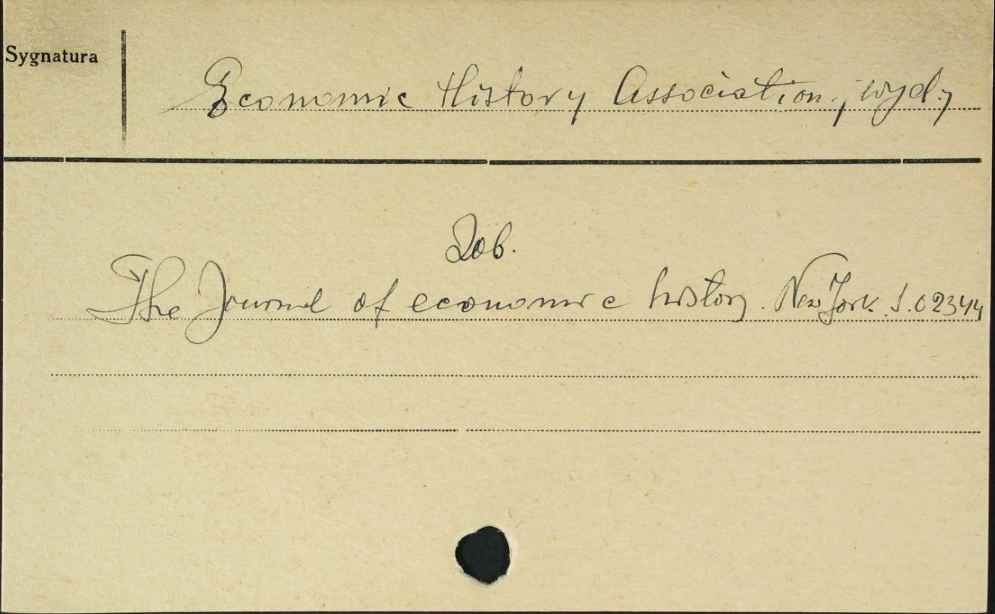 Sygnatura
Economic History Association, wyd.
Zob.
The Journal of economic history. New York. S.02344